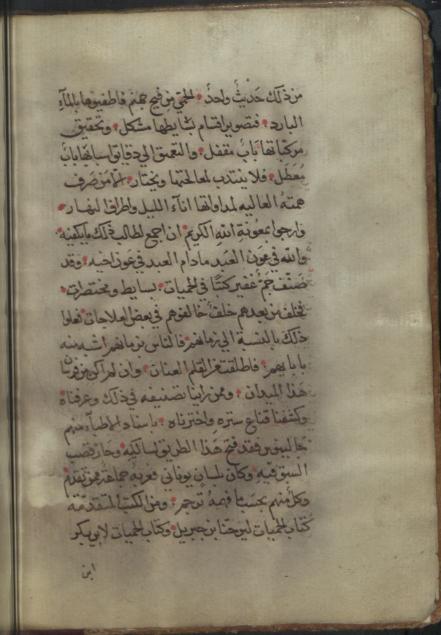 من ذلك حديث واحد الحمى من فيح جهنم فاطفيوها بالمآء
البارد فتصوير اقسام بسايطها مشكل وتحقيق
مركباتها باب مقفل والتعمق الى دقايق اسبابها باب
معطل فلا ينتدب لمعالجتها ويختار الا من صرف
همته العاليه لمداولتها انآء الليل واطراف النهار
وارجوا معونة الله الكريم ان اجمع لطالب ذلك ما يكفيه
والله في عون العبد ما دام العبد في عون اخيه وقد
صنف جم غفير كتبا في الحميات بسايط ومختصرات
فخلف من بعدهم خلف خالفوهم في بعض العلاجات
ذلك بالنسبة الى زمانهم فالناس بزمانهم اشبه منه
بابايهم فاطلقت نحو القلم العنان وان لم اكن من فرسان
هذا الميدان وممن راينا تصنيفه في ذلك وعرفناه
وكشفنا قناع ستره واخترناه استاد الاطبآء منهم
جالينوس فقد فتح هذا الطريق لسالكيه وحاز قصب
السبق فيه وكان بلسان يوناني فعربه جماعة ممن تقدم
وكل منهم بحسب ما فهمه ترجم ومن الكتب المتقدمة
كتاب الحميات ليوحنا بن جبريل وكتاب الحميات لابي بكر
ابن